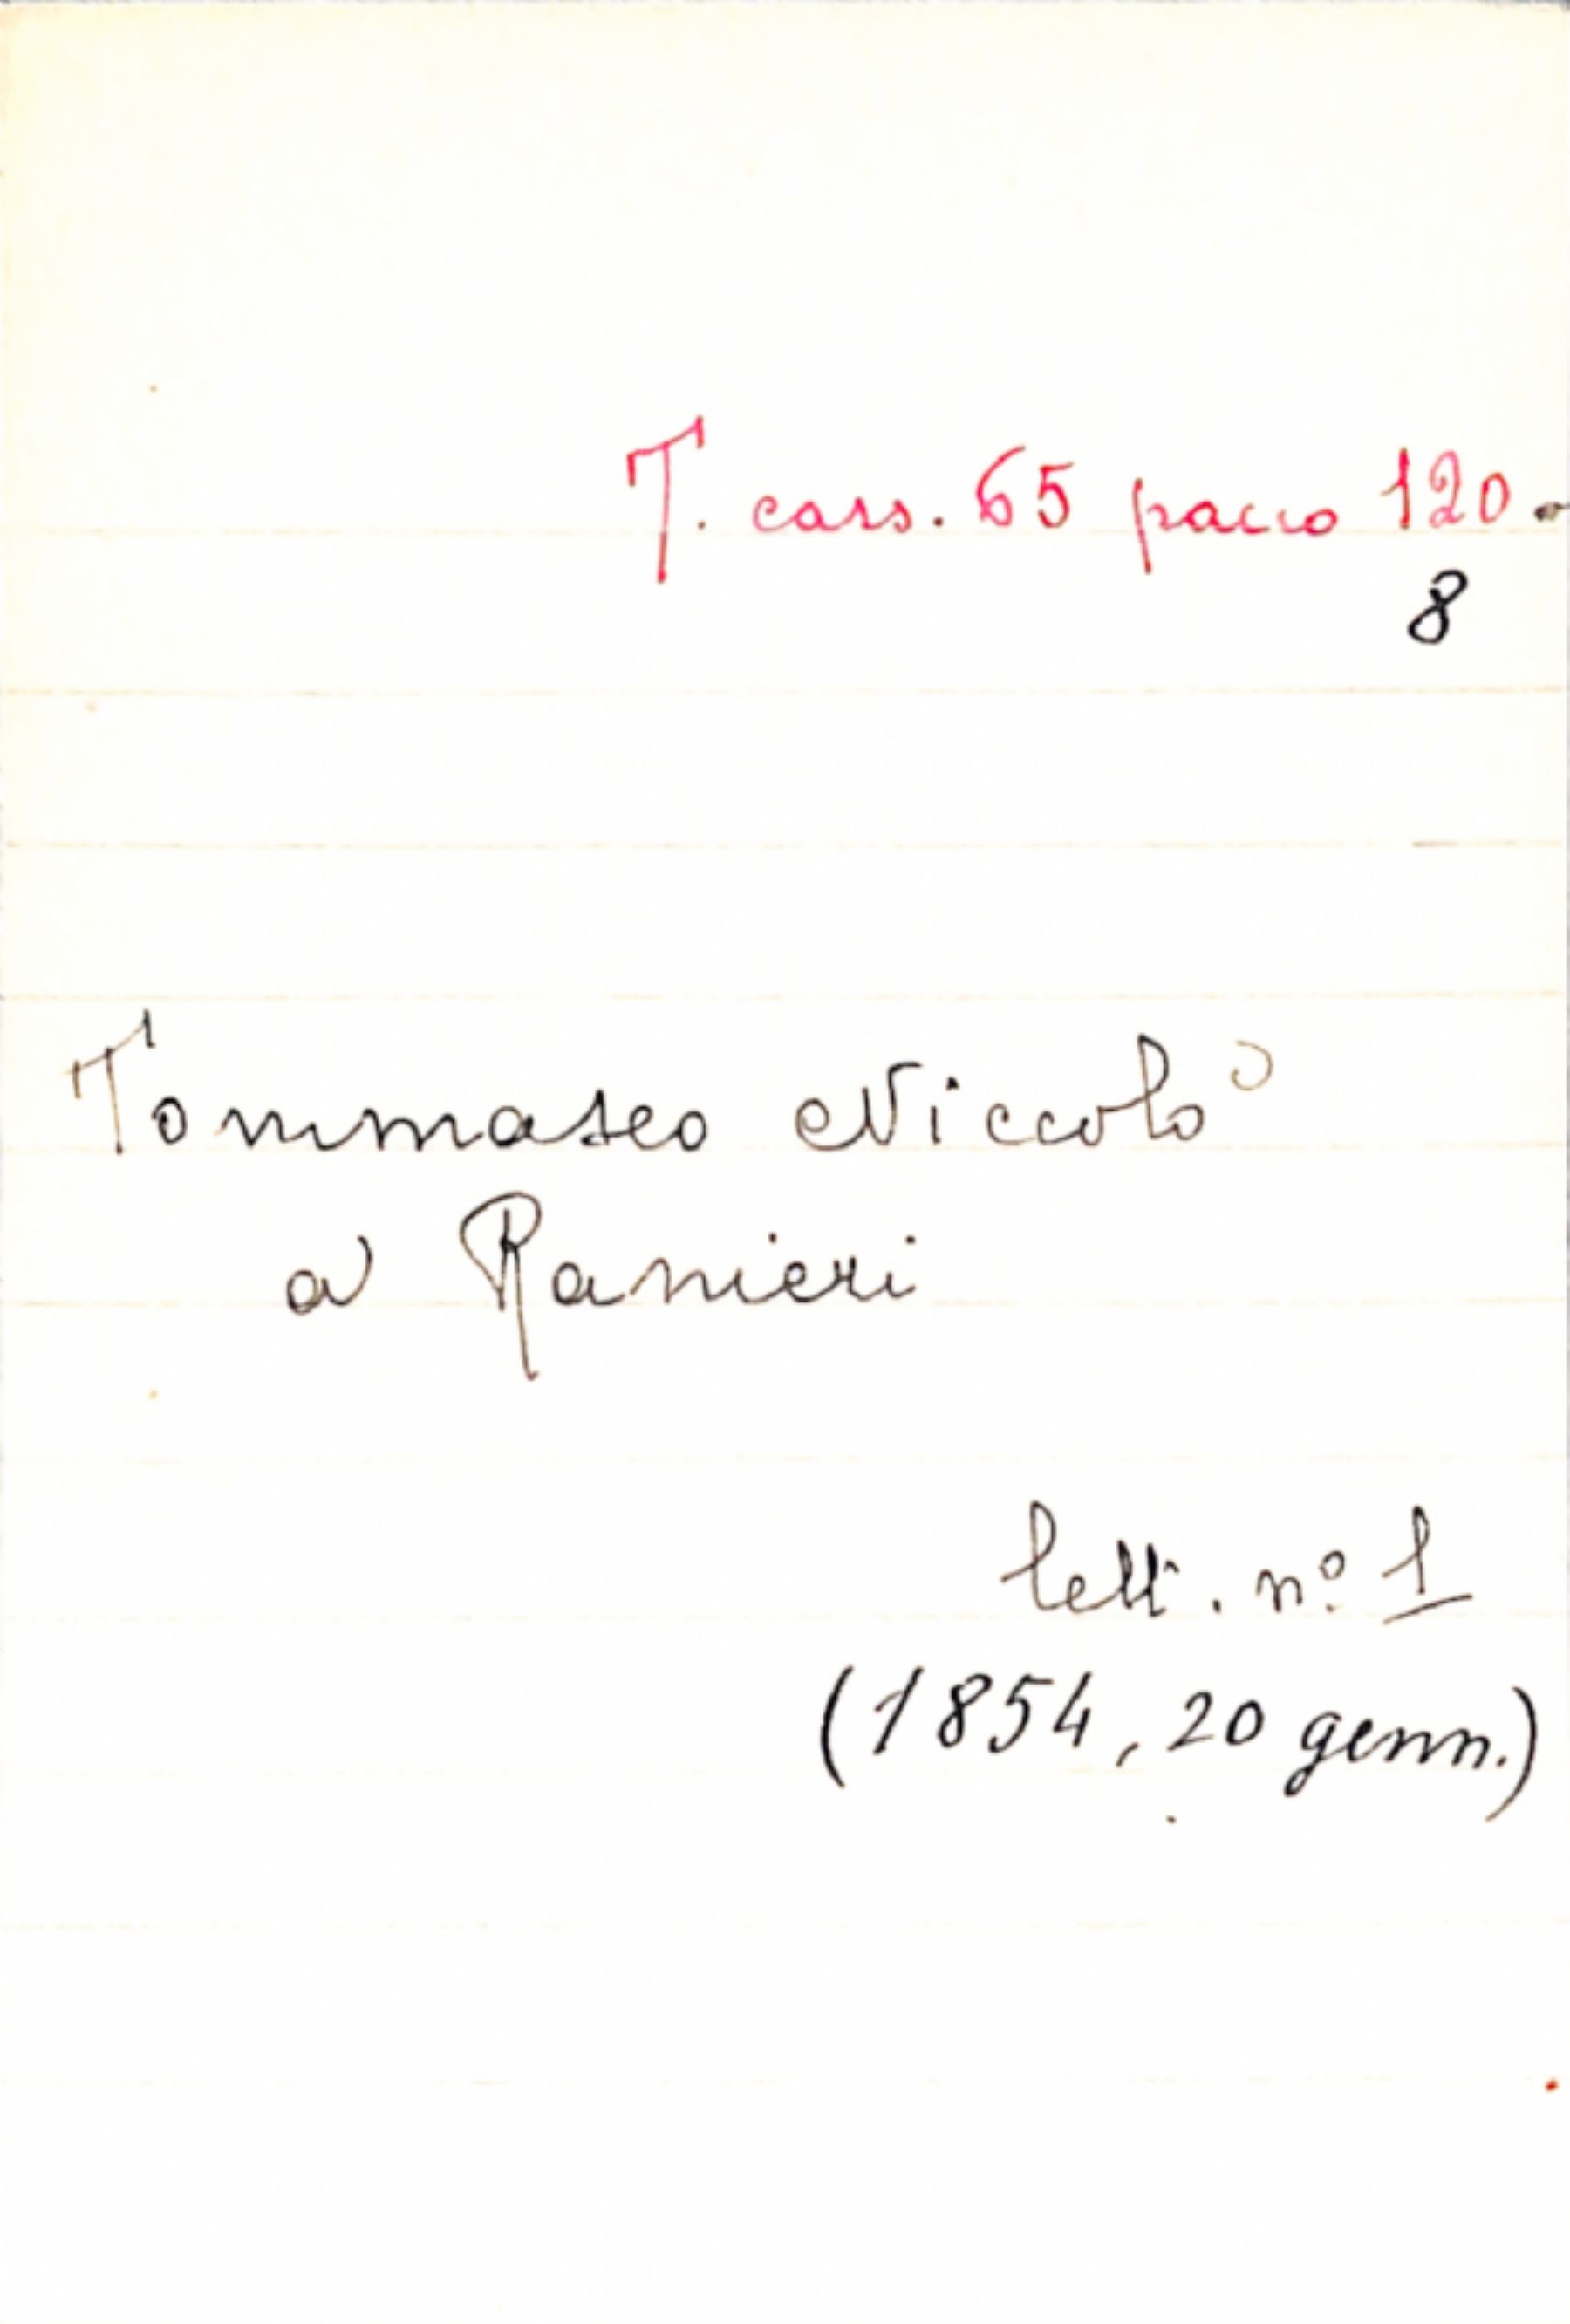 T. cass. 65 pacco 120.
8
Tommaseo Niccolò
a Ranieri
lett. nº 1
(1854, 20 genn.)